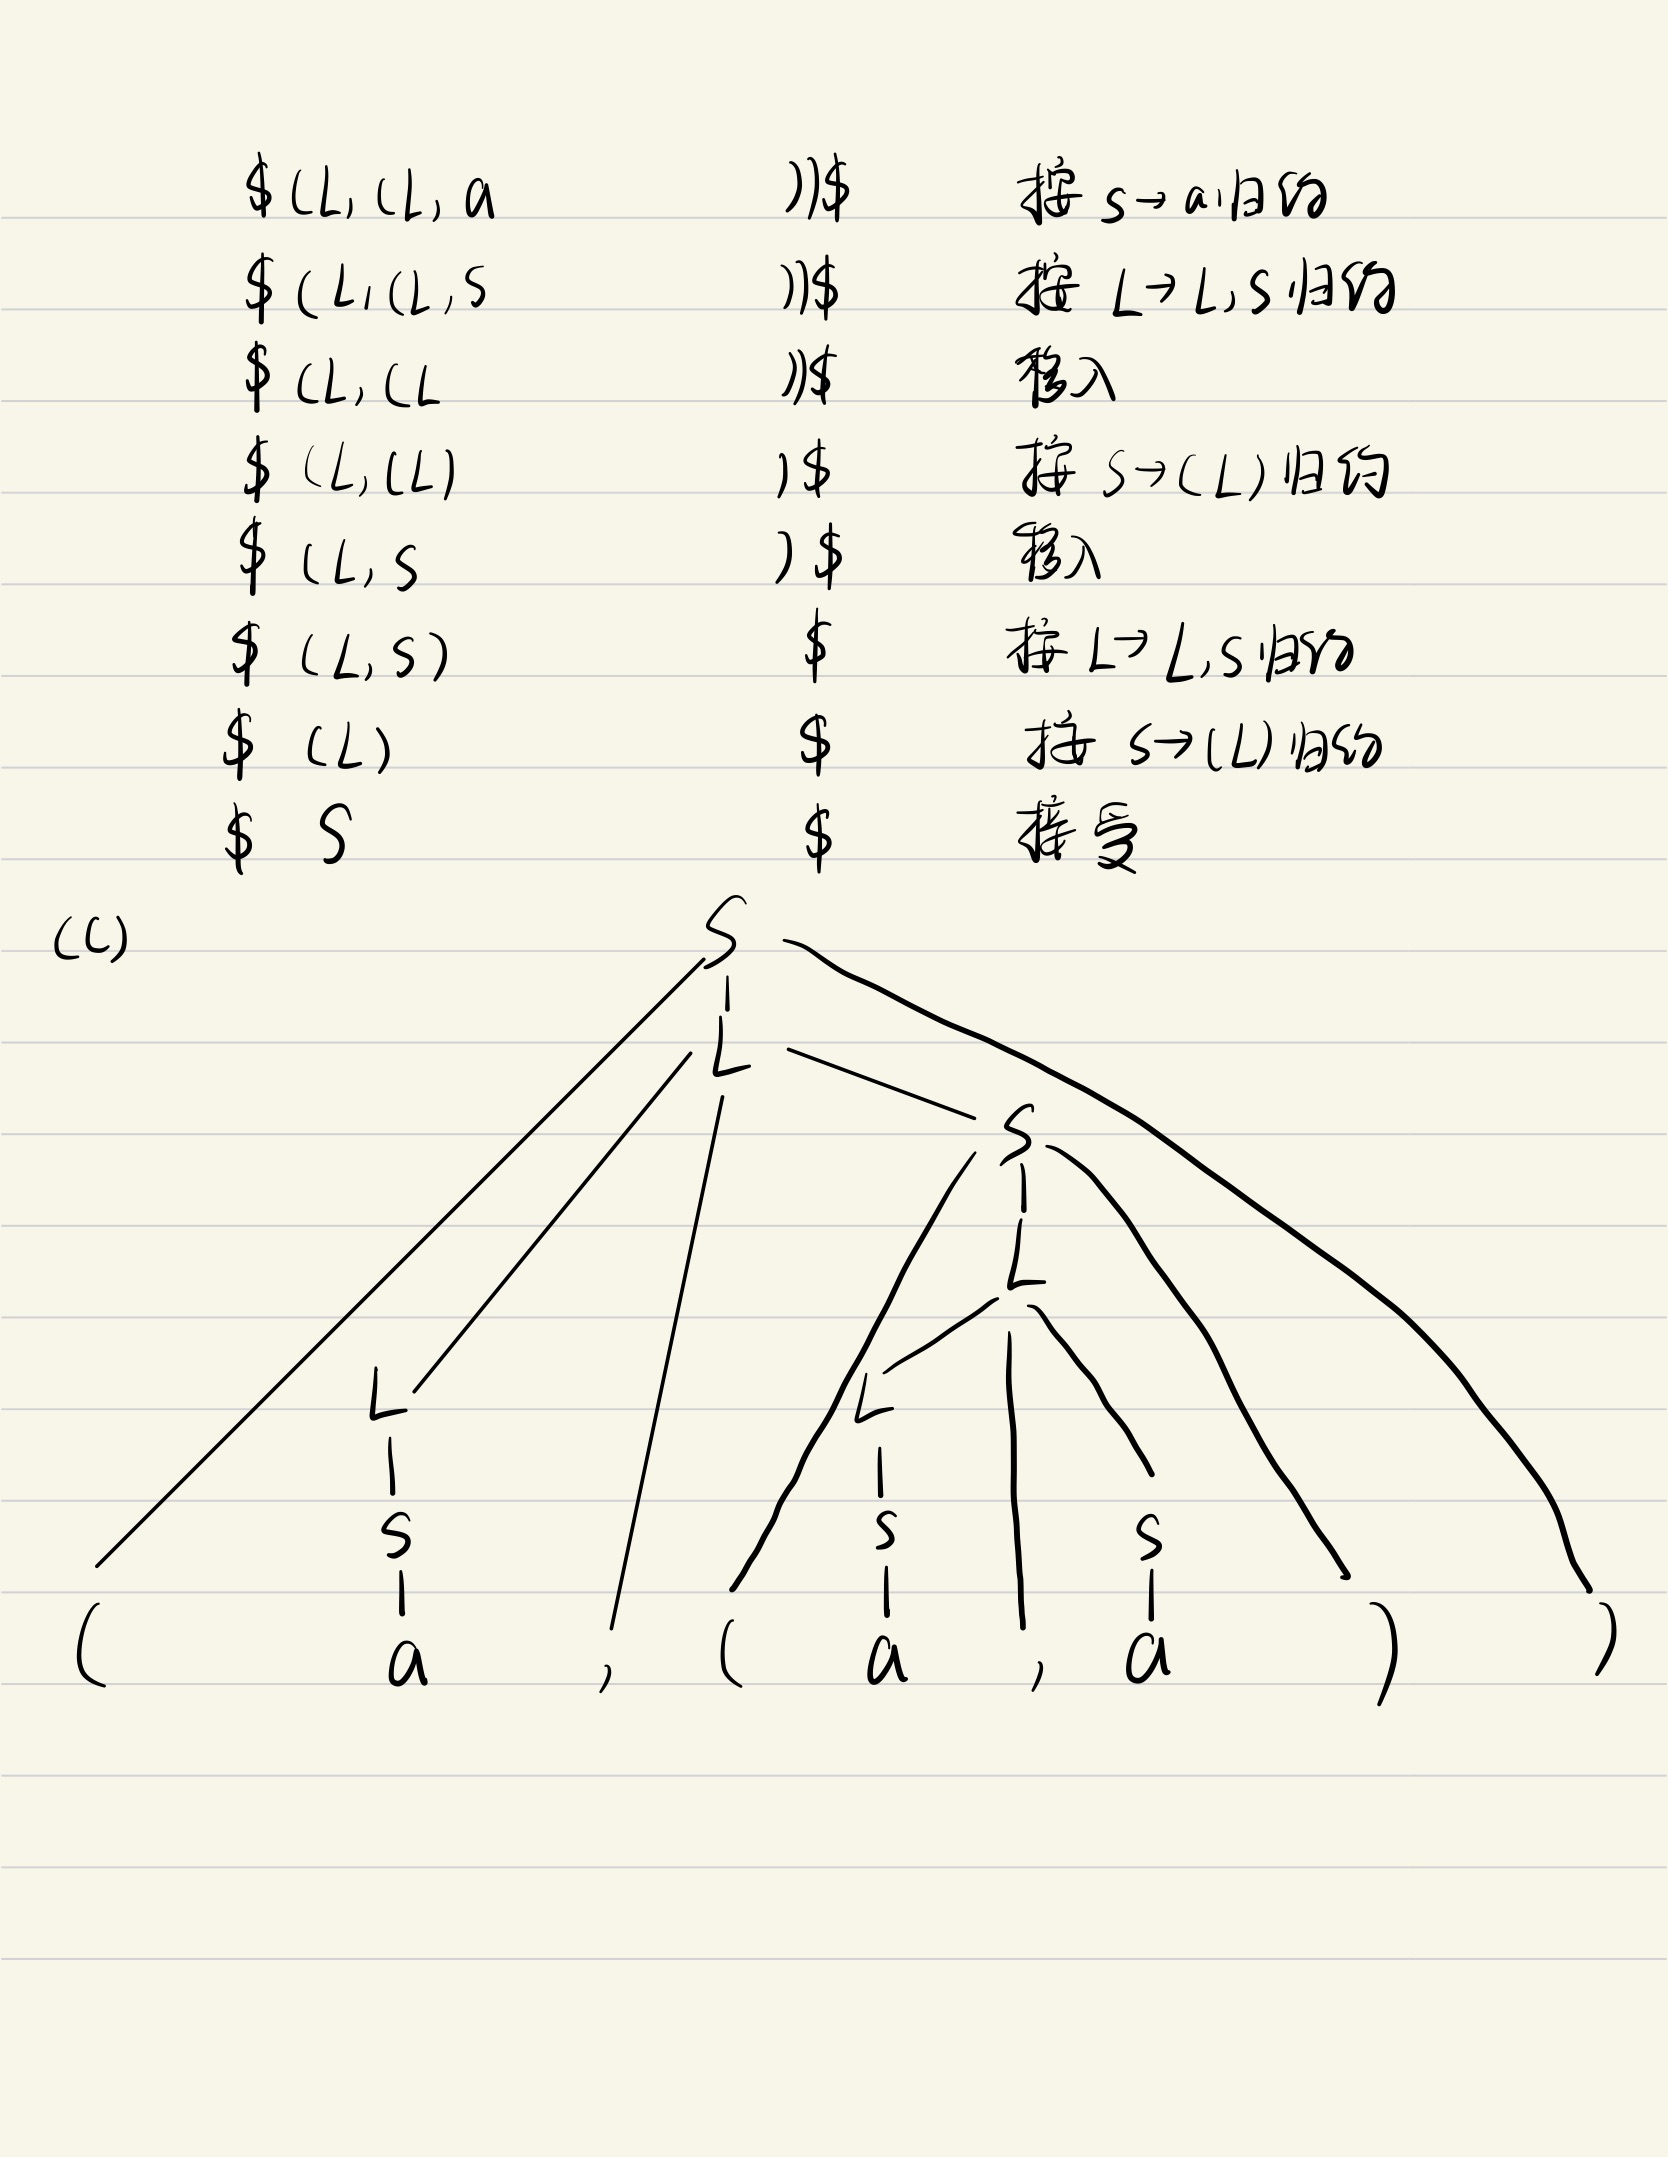 $(L,(L,a ))$ 按 S→a 归约
$(L,(L,S ))$ 按 L→L,S 归约
$(L,(L ))$ 移入
$(L,(L) )$ 按 S→(L) 归约
$(L,S )$ 移入
$(L,S) $ 按 L→L,S 归约
$(L) $ 按 S→(L) 归约
$ S $ 接受
(C) S
L
S
L
L L
S S S
( a , ( a , a ) )